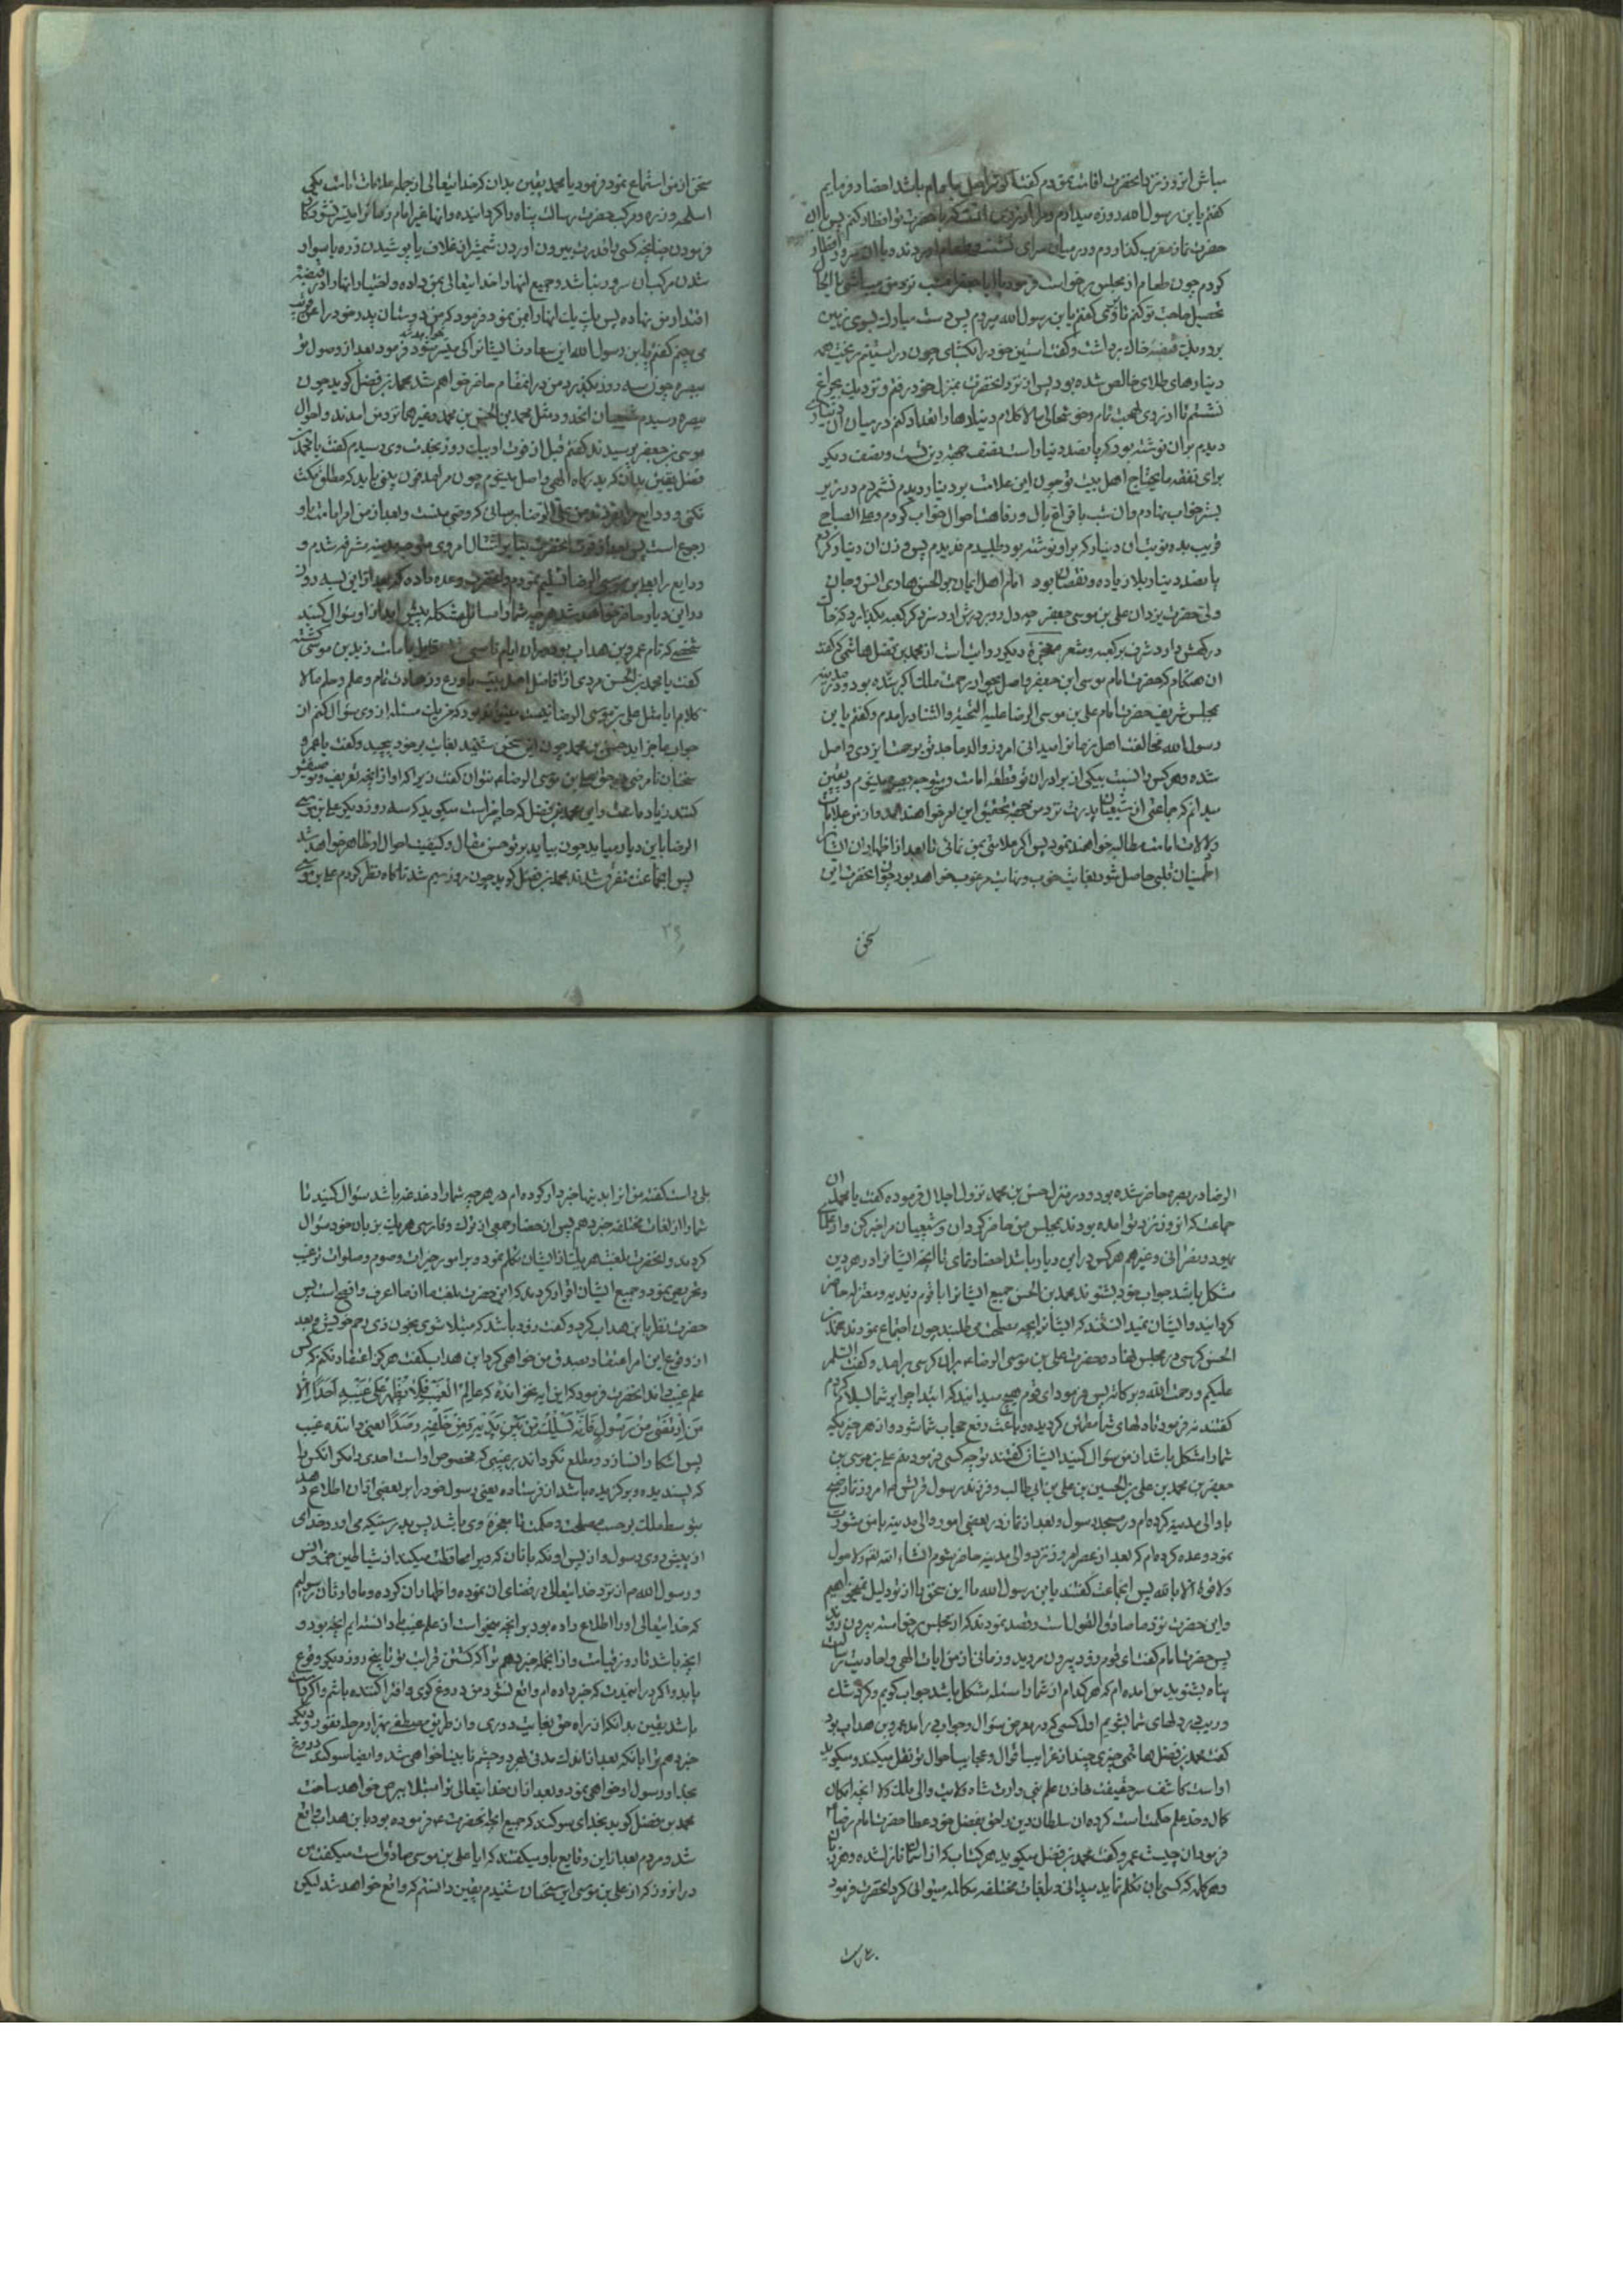 مباش انروز نزد انحضرت اقامت نمودم گفت اگر ترا میل بطعام باشد احضار فرمایم
گفتم یا بن رسول الله روزه میدارم و مرا ارزوی انست که با حضرت تو افطار کنم پس با ان
حضرت نماز مغرب گذاردم و در میان سرای نشست و طعام اوردند و با ان سرور افطار
کردم چون طعام از مجلس برخواست فرمود یا ایا حضر امشب نزد من میباشی یا الحال
تحصیل حاجت تو کنم تا روی گفتم یا بن رسول الله میروم پس دست مبارک بسوی زمین
برد و یک قبضه خاک برداشت و گفت استین خود را بگشای چون در استینم ریخت همه
دینارهای طلای خالص شده بود پس از نزد انحضرت بمنزل خود رفتم و نزدیک بچراغ
نشستم تا از روی بهجت تمام و خوشحالی مالاکلام دینارها را تعداد کنم در میان ان دیناری
دیدم بر ان نوشته بود که پانصد دینار است نصف جهة دین تست و نصف دیگر
برای نفقه مایحتاج اهل بیت تو چون این علامت بر دینار دیدم نشمردم و در زیر
بستر خواب نهادم و ان شب با فراغ بال و رفاهت احوال خواب کردم و علی الصباح
قریب بده نوبت ان دینار که بر او نوشته بود طلبیدم ندیدم پس وزن ان دینار کردم
پانصد دینار بلا زیاده و نقصان بود امام اهل ایمان بو الحسن هادی انس و جان
ولی حضرت یزدان علی بن موسی جعفر چه دل رو بر درش ارد سزد کر کعبه بگذارد که خاک
درگهش دارد شرف بر کعبه و مشعر معجزه دیگر روایت است از محمد بن فضل هاشمی که گفت
ان هنگام که حضرت امام موسی ابن جعفر واصل بجوار رحمت ملک اکبر شده بود در مدینه
بمجلس شریف حضرت امام علی بن موسی الرضا علیه التحیة و الثنا درامدم و گفتم یا بن
رسول الله مخالفت اهل زمانرا میدانی امروز والد ماجد تو برحمت ایزدی واصل
شده و هر کس را نسبت بیکی از برادران تو قطعه امامت و متوجه بصره میشوم و یقین
میدانم که جماعتی از شیعیان پدرت نزد من جهة تحقیق این امر خواهند امد و از من علامات
و دلالات امامت مطالبه خواهند نمود پس اگر علامتی بمن نمائی تا بعد از اظهار ان ایشانرا
اطمینان قلبی حاصل شود بغایت خوب و نهایت مرغوب خواهد بود چون انحضرت این
سخن
سخن از من استماع نمود فرمود یا محمد یقین بدان که خدایتعالی از جمله علامات امامت یکی
اسلحه و زره و مرکب حضرت رسالت پناه را گردانیده و انها غیر امام زمانرا میسر نشود کار
فرمودن چنانچه کسی را قدرت بیرون اوردن شمشیر از غلاف یا پوشیدن زره یا سوار
شدن مرکب ان سرور نباشد و جمیع انها را خدایتعالی بمن داده و اختیار انها را در قبضه
اقتدار من نهاده پس یک یک انها را بمن نمود و فرمود که من دوستان پدر خود را عن قریب
می بینم گفتم یا بن رسول الله این سعادت ایشانرا کی میسر شود فرمود بعد از وصول تو
ببصره چون سه روز بگذرد من در انمقام حاضر خواهم شد محمد بن فضل گوید چون
ببصره رسیدم شیعیان انحدود مثل محمد بن الحسن بن محمد و غیرهما نزد من امدند و احوال
موسی بن جعفر پرسیدند گفتم قبل از فوت او بیک روز بخدمت وی رسیدم گفت یا محمد بن
فضل یقین بدان که بدرگاه الهی واصل میشوم چون مرا مدفون بینی باید که مطلق مکث
نکنی و ودایع مرا بفرزند من علی الرضا برسانی که وصی منست و بعد از من امر امامت باو
رجوع است پس بعد از فوت انحضرت بنا بر امتثال امر وی متوجه مدینه مشرفه شدم و
ودایع را بعلی بن موسی الرضا تسلیم نمودم و انحضرت وعده داده که بعد از این بسه روز
در این دیار حاضر خواهد شد هر چه شما را مسائل مشکله پیش ابد از او سؤال کنید
شخصی که نام عمرو بن هداب بود و در ان ایام ناصبی شده قایل بامامت زید بن موسی گشته
گفت یا محمد بن الحسن مردی از افاضل اهل بیت با ورع و زهادت تام و علم و حلم مالا
کلام ایا مثل علی بن موسی الرضا نیست میتواند بود که من یک مسئله از وی سؤال کنم از ان
جواب عاجز اید حسن بن محمد چون این سخن شنید بغایت برخود پیچید و گفت یا عمرو
سخنان نامرضی در حق علی بن موسی الرضا نتوان گفت زیرا که او از انچه تعریف و توصیف
کنند زیاد ما عست و این محمد بن فضل که حاضر است میگوید که سه روز دیگر علی بن موسی
الرضا باین دیار میاید چون بیاید بر تو حسن مقال و کیفیت احوال او ظاهر خواهد شد
پس انجماعت متفرق شدند محمد بن فضل گوید چون روز سیم شد ناگاه نظر کردم علی بن موسی
۲۹
الرضا در بصره حاضر شده بود و در منزل حسن بن محمد نزول اجلال فرموده گفت یا محمد ان
جماعت که انروز نزد تو امده بودند بمجلس من حاضر گردان و شیعیان مرا خبر کن و از علمای
یهود و نصرانی و غیرهم هر کس در این دیار باشد احضار نمای تا انچه ایشانرا در هر دین
مشکل باشد جواب خود بشنوند محمد بن الحسن جمیع ایشانرا با قوم زیدیه و معتزله حاضر
گردانید و ایشان نمیدانستند که ایشانرا بچه مصلحت می طلبند چون اجتماع نمودند محمد بن
الحسن کرسی در مجلس نهاد و حضرت علی بن موسی الرضا بر ان کرسی برامد و گفت السلام
علیکم و رحمت الله و برکاته پس فرمود ای قوم هیچ میدانید که ابتدا چرا بر شما سلام کردم
گفتند نه فرمود تا دلهای شما مطمئن گردیده و باعث رفع حجاب شما شود و از هر چیزیکه
شما را مشکل باشد از من سؤال کنید ایشان گفتند تو چه کسی فرمود منم علی بن موسی بن
جعفر بن محمد بن علی بن الحسین بن علی بن ابی طالب و فرزند رسول قریش ام امروز نماز صبح
با والی مدینه کرده ام در مسجد رسول و بعد از نماز در بعضی امور والی مدینه با من مشورت
نمود وعده کرده ام که بعد از عصر امروز نزد والی مدینه حاضر شوم انشاء الله تعالی و لا حول
و لا قوة الا بالله پس انجماعت گفتند یا بن رسول الله ما این سخن را از تو دلیل نمیخواهیم
و این حضرت نزد ما صادق القول است و قصد نمودند که از مجلس برخواسته بیرون روند
پس حضرت امام گفت ای قوم زود بیرون مروید و زمانی از من ایات الهی و احادیث رسالت
پناه بشنوید من امده ام که هر کدام از شما را مسئله مشکل باشد جواب گویم و گرد شک
و ریب بر دلهای شما بشویم اول کسی که در معرض سؤال و جواب برامد عمرو بن هداب بود
گفت محمد بن فضل هاشمی چیزی چند از غرایب اقوال و عجایب احوال تو نقل میکند و میگوید
او است کاشف سر حقیقت خازن علم نبی وارث شاه ولایت والی ملک ولا انچه امکان
کمال و حد علم حکمت است کرده ان سلطان دین را حق بفضل خود عطا حضرت امام رضا
فرمود ان چیست عمرو گفت محمد بن فضل میگوید هر کتاب که از اسمان نازل شده و هر زبان
و هر کلمه که کسی بان تکلم نماید میدانی و بلغات مختلفه مکالمه میتوانی کرد انحضرت فرمود
بلی راست گفته من او را بدینها خبردار کرده ام در هر چه شما را دغدغه باشد سؤال کنید تا
شما را از لغات مختلفه خبر دهم پس ان حضار جمعی از ترک و فارسی هر یک بزبان خود سؤال
کردند و انحضرت بلغت هر یک از ایشان تکلم نمود و بر امور خیرات و صوم و صلوات ترغیب
و تحریص نمود و جمیع ایشان اقرار کردند که این حضرت بلغت ما از ما اعرف و افصح است پس
حضرت نظر با بن هداب کرد و گفت زود باشد که مبتلا شوی بخون ذی رحم خویش و بعد
از وقوع این امر اعتقاد بصدق من خواهی کرد ابن هداب گفت هرگز اعتقاد نکنم که کس
علم غیب داند انحضرت فرمود که این ایه نخوانده که عالم الغیب فلا یظهر علی غیبه احدا الا
من ارتضی من رسول فانه یسلک من بین یدیه و من خلفه رصدا یعنی داننده غیب
پس اشکارا نسازد و مطلع نگرداند بر غیبی که مخصوص او است احدی را مگر انکس را
که پسندیده و برگزیده باشد از فرستاده یعنی رسول خود را بر بعضی از ان اطلاع دهد
بتوسط ملک بر حسب مصلحت و حکمت تا معجزه وی باشد پس بدرستیکه می اورد خدای
از پیش روی رسول و از پس او نگهبانان که ویرا محافظت میکند از شیاطین جن و انس
و رسول الله هم از نزد خدایتعالی درضای ان نموده و اظهار ان کرده و ما وارثان رسولیم
که خدایتعالی او را اطلاع داده بود بر انچه میخواست از علم غیب ما دانسته ایم انچه بود و
انچه باشد تا روز قیامت و از انجمله خبر دهم ترا که کشتن قرابت تو تا پنج روز دیگر وقوع
یابد و اگر در این مدت که خبر داده ام واقع نشود من دروغ گوی و افترا کننده باشم و اگر راست
باشد یقین بدانکه از راه حق بغایت دوری و از طریق مصطفی بهزار مرحله نفور و دیگر
خبر دهم ترا بانکه بعد از اندک مدتی بهر دو چشم نابینا خواهی شد و ایضا سوگند دروغ
بخدا و رسول او خواهی نمود و بعد از ان خدایتعالی ترا مبتلا ببرص خواهد ساخت
محمد بن فضل گوید بخدای سوگند که جمیع انچه انحضرت فرموده بود بابن هداب واقع
شد و مردم بعد از این وقایع باو میگفتند که ایا علی بن موسی صادق است میگفت من
در انروز که از علی بن موسی این سخنان شنیدم یقین دانستم که واقع خواهد شد لیکن